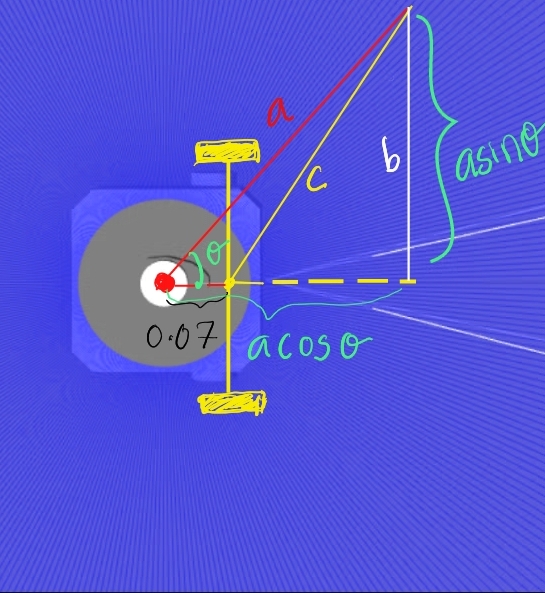 a
b
asinθ
c
θ
0.07
acosθ